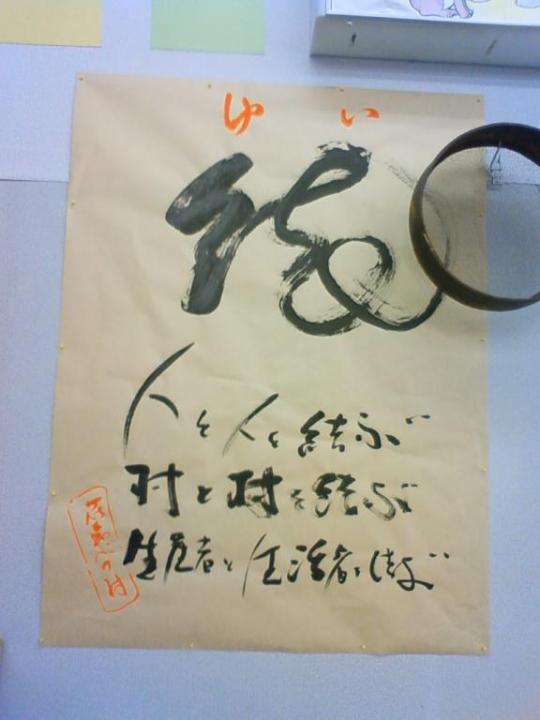 ゆい
結
人と人を結ぶ
村と村を結ぶ
生産者と生活者を結ぶ